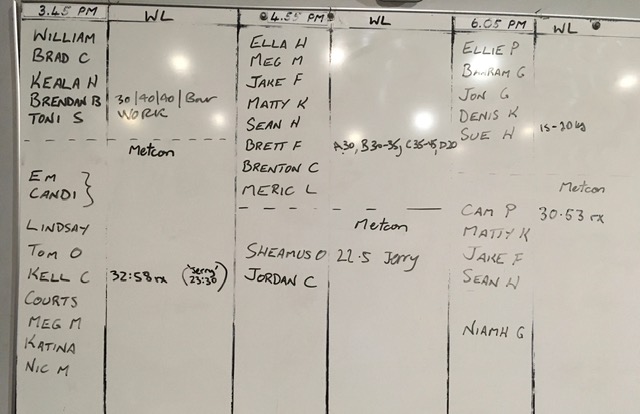 3.45 PM WL
WILLIAM
BRAD C
KEALA H
BRENDAN B 30/40/40/Bar
TONI S WORK
Metcon
EM
CANDI }
LINDSAY
TOM O
KELL C 32:58 rx ("Jerry" 23:30)
COURTS
MEG M
KATINA
NIC M
4.55 PM WL
ELLA H
MEG M
JAKE F
MATTY K
SEAN H
BRETT F A30, B30-35, C35-45, D20
BRENTON C
MERIC L
Metcon
SHEAMUS O 22.5 Jerry
JORDAN C
6.05 PM WL
ELLIE P
BAHRAM G
JON G
DENIS K
SUE H 15-20kg
Metcon
CAM P 30.53 rx
MATTY K
JAKE F
SEAN H
NIAMH G